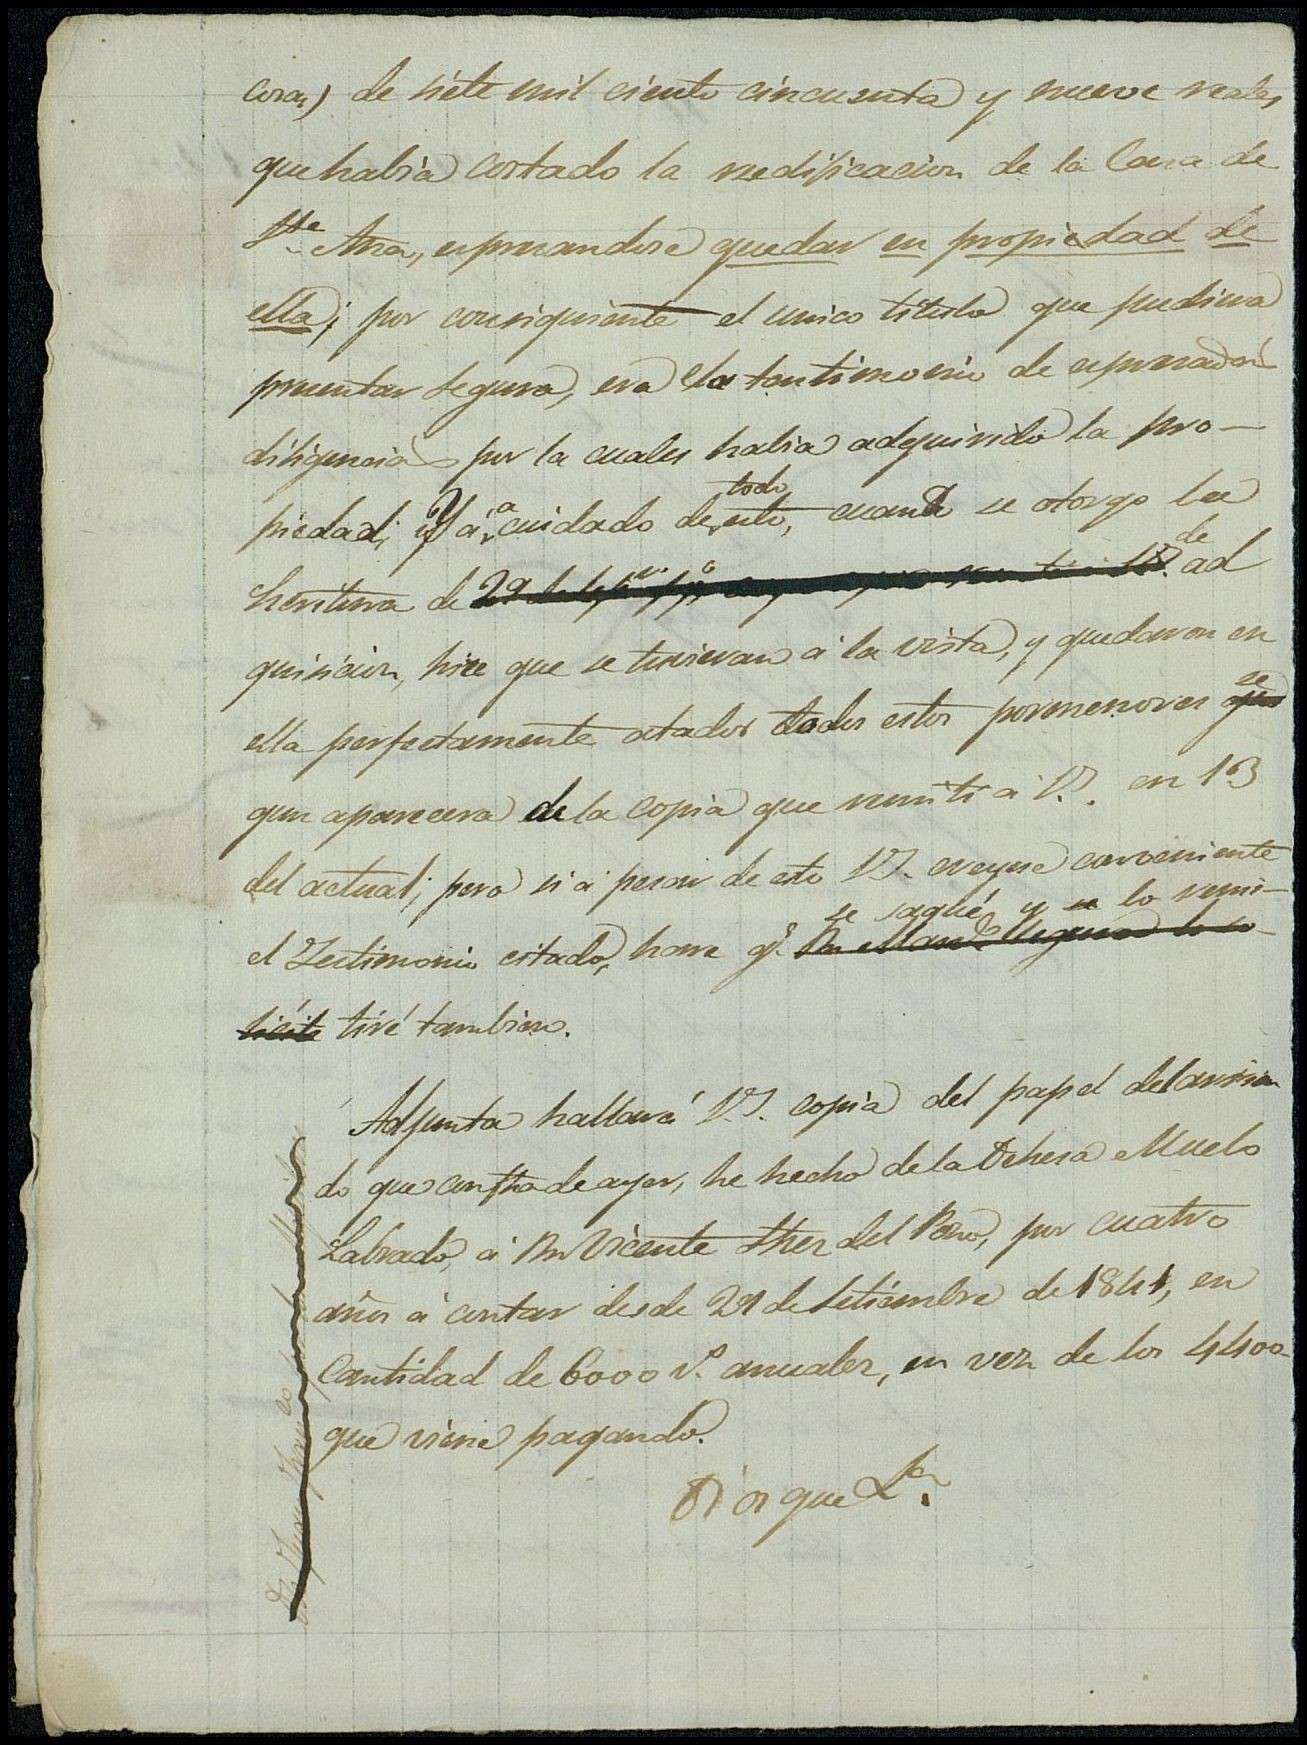 cosas) de siete mil ciento cincuenta y nueve reales
que habia costado la reedificacion de la Casa de
Ste Ana, espresandose quedar en propiedad de
ella; por consiguiente el unico titulo que pudiera
presentar Segura, era el testimonio de espresadas
diligencias por la cuales habia adquirido la pro-
piedad; Y a cuidado de todo esto, cuando se otorgo la
Escritura de 29 de de ad
quisicion, hice que se tuvieran á la vista, y quedaron en
ella perfectamente atados todos estos pormenores se
gun aparecera de la copia que remiti á V. en 13
del actual; pero si á pesar de esto V. creyese conveniente
se saqué y se lo remi-
el Testimonio citado, hare q.e
tiré tambien.
Adjunta hallará V. copia del papel del arrien
do que con fha de ayer, he hecho de la Dehesa Muelo
Labrado, á Dn Vicente del Pozo, por cuatro
años á contar desde 29 de Setiembre de 1841, en
Cantidad de 6000 r.s anuales, en vez de los 4400
que viene pagando.
D.s gue